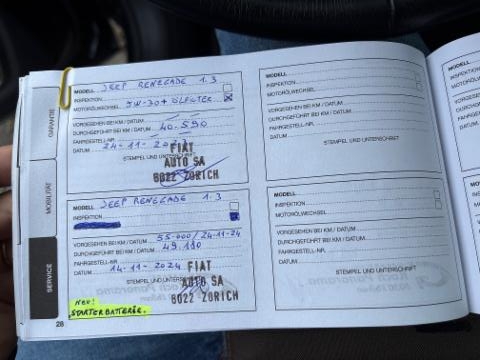 GARANTIE
MOBILITÄT
SERVICE
MODELL JEEP RENEGADE 1.3
INSPEKTION
MOTORÖLWECHSEL 5W-30 +
VORGESEHEN BEI KM / DATUM
DURCHGEFÜHRT BEI KM / DATUM 40.590
FAHRGESTELL-NR.
DATUM 24-11-20
STEMPEL UND UNTERSCHRIFT
FIAT
AUTO SA
8022 ZÜRICH
MODELL JEEP RENEGADE 1.3
INSPEKTION
VORGESEHEN BEI KM / DATUM 55.000 / 24-11-24
DURCHGEFÜHRT BEI KM / DATUM 49.180
FAHRGESTELL-NR.
DATUM 14-11-2024
STEMPEL UND UNTERSCHRIFT
FIAT
AUTO SA
8022 ZÜRICH
NEU!
STARTERBATTERIE.
28
MODELL
INSPEKTION
MOTORÖLWECHSEL
VORGESEHEN BEI KM / DATUM
DURCHGEFÜHRT BEI KM / DATUM
FAHRGESTELL-NR.
DATUM
STEMPEL UND UNTERSCHRIFT
MODELL
INSPEKTION
MOTORÖLWECHSEL
VORGESEHEN BEI KM / DATUM
DURCHGEFÜHRT BEI KM / DATUM
FAHRGESTELL-NR.
DATUM
STEMPEL UND UNTERSCHRIFT